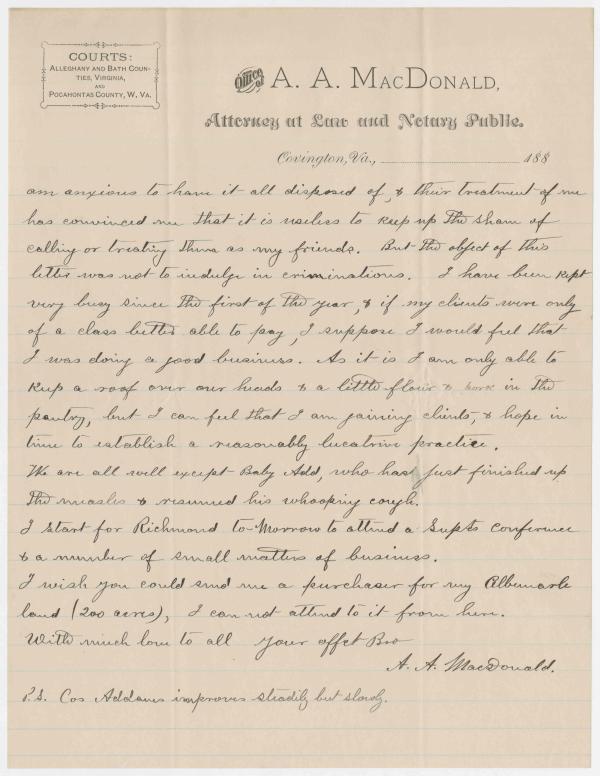 COURTS:
ALLEGHANY AND BATH COUN-
TIES, VIRGINIA,
AND
POCAHONTAS COUNTY, W. VA.
Office of A. A. MACDONALD,
Attorney at Law and Notary Public.
Covington, Va., 188
am anxious to have it all disposed of, & their treatment of me
has convinced me that it is useless to keep up the sham of
calling or treating them as my friends. But the object of this
letter was not to indulge in criminations. I have been kept
very busy since the first of the year, & if my clients were only
of a class better able to pay, I suppose I would feel that
I was doing a good business. As it is I am only able to
keep a roof over our heads & a little flour & pork in the
pantry, but I can feel that I am gaining clients, & hope in
time to establish a reasonably lucatrive practice.
We are all well except Baby Add, who has just finished up
the measles & resumed his whooping cough.
I start for Richmond to-Morrow to attend a Supts conference
& a number of small matters of business.
I wish you could send me a purchaser for my Albemarle
land (200 acres), I can not attend to it from here.
With much love to all your affct Bro
A. A. MacDonald.
P.S. Cos Addams improves steadily but slowly.